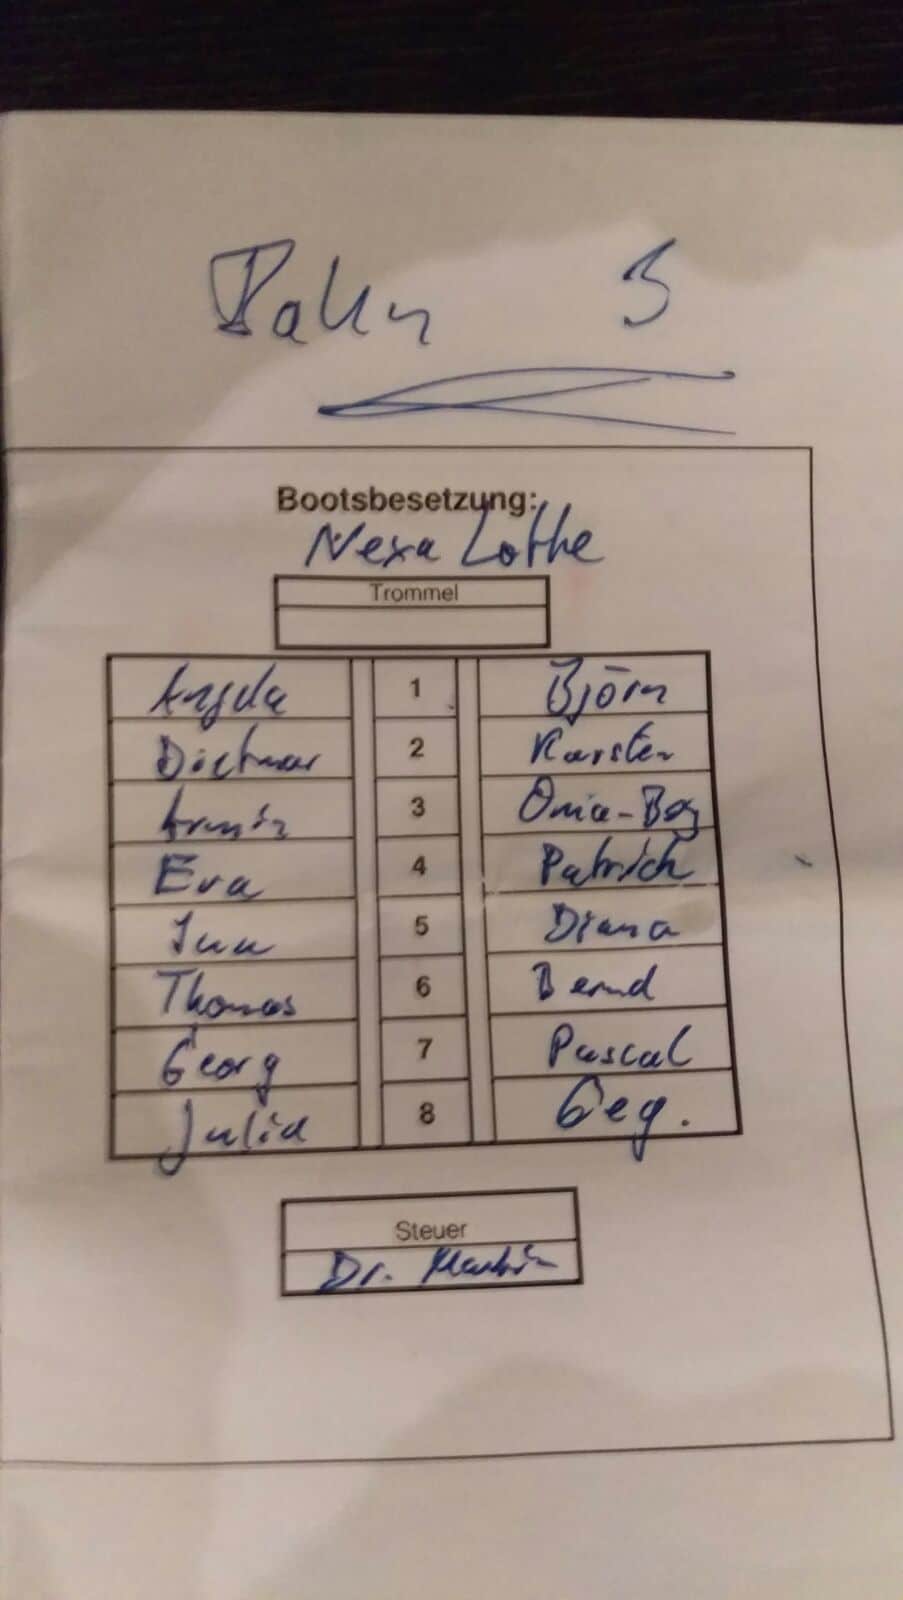 Bahn 3
Bootsbesetzung:
Nexa Lotte
Trommel
Angela 1 Björn
Dietmar 2 Karsten
Armin 3
Eva 4 Patrick
5 Diana
Thomas 6 Bernd
Georg 7 Pascal
Julia 8 Geg.
Steuer
Dr. Martin